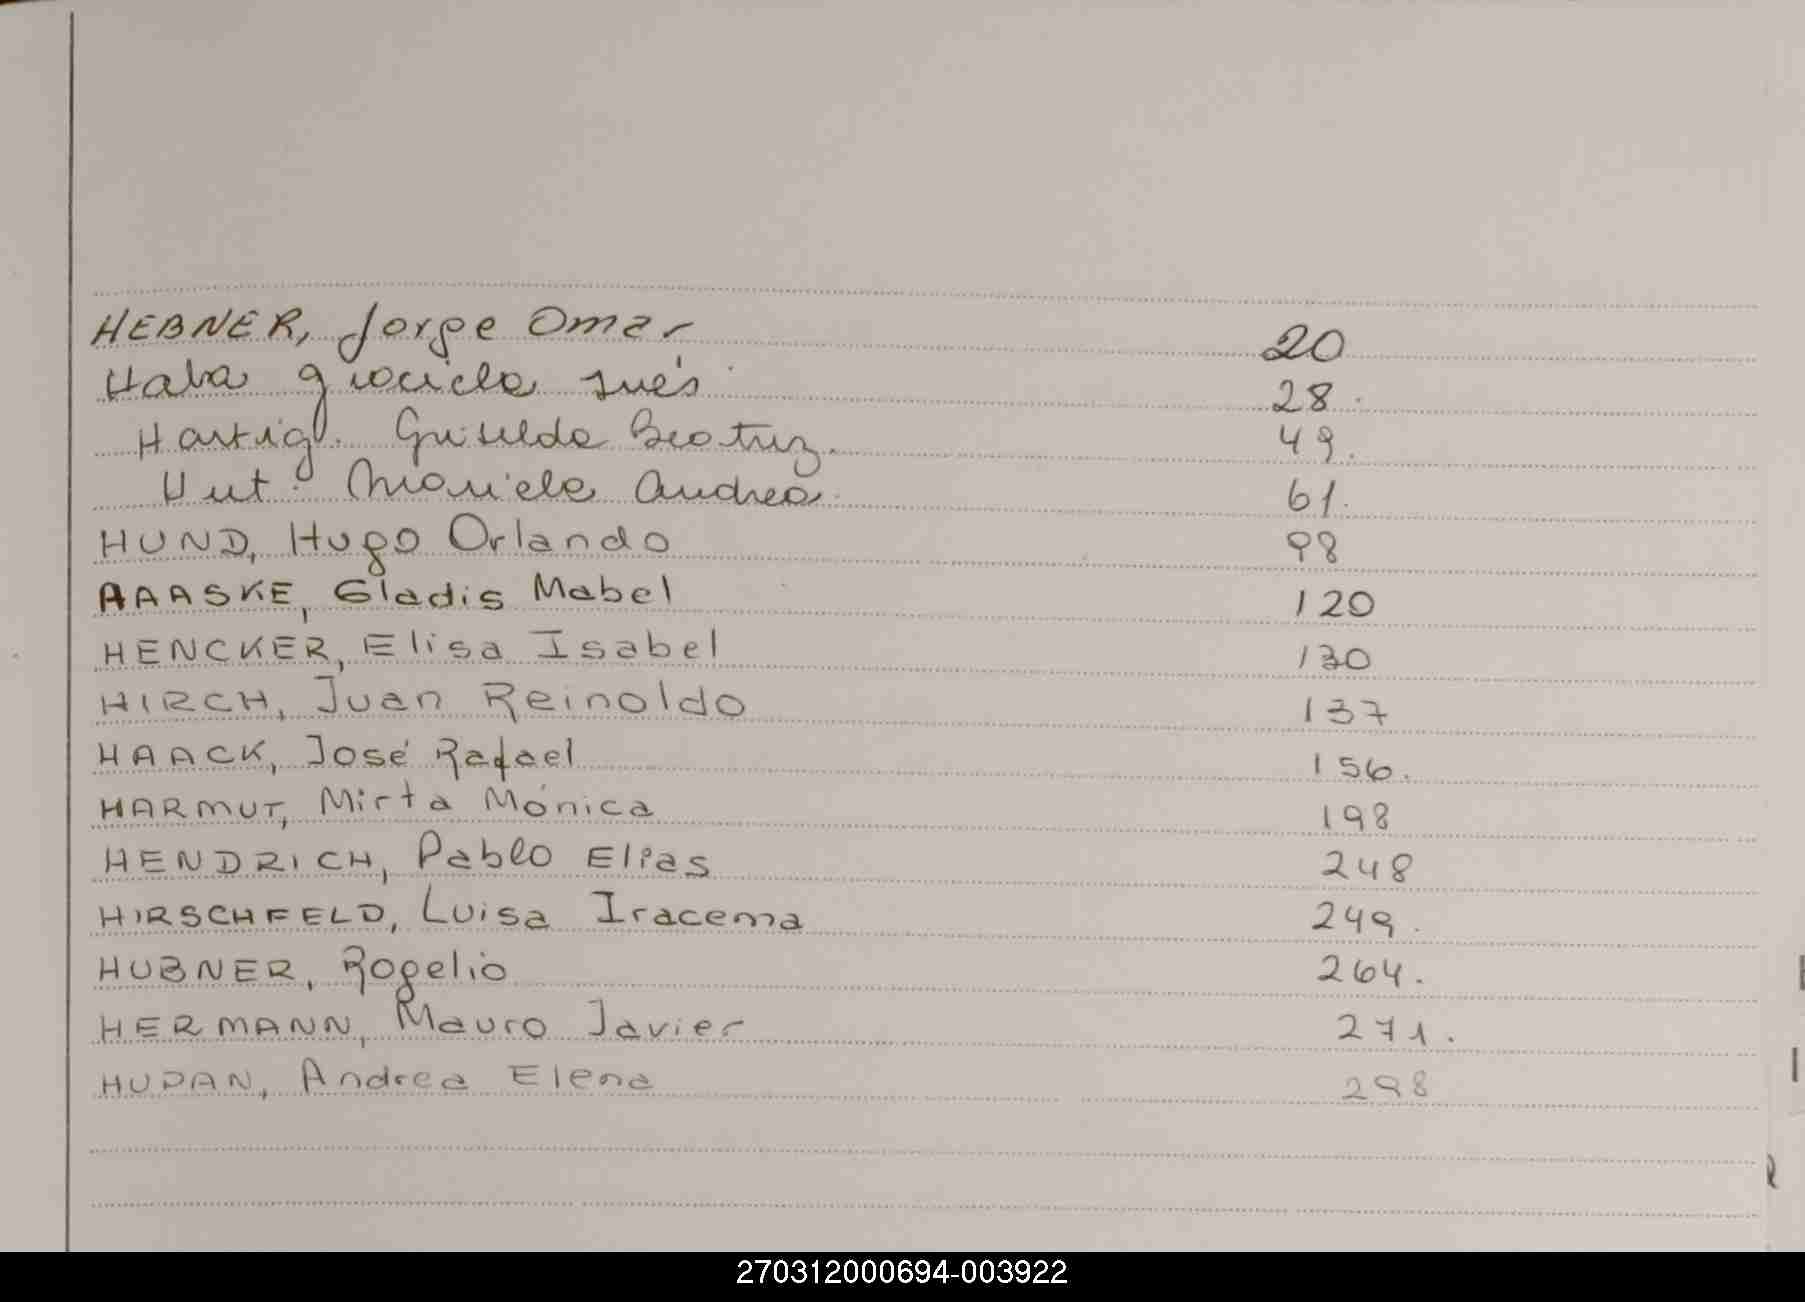 HEBNER, Jorge Omar 20
Haba Graciela Inés 28.
Hartig. Griselda Beatriz. 49.
Hut. Mariela Andrea. 61.
HUND, Hugo Orlando 98
HAASKE, Gladis Mabel 120
HENCKER, Elisa Isabel 130
HIRCH, Juan Reinoldo 137
HAACK, José Rafael 156.
HARMUT, Mirta Mónica 198
HENDRICH, Pablo Elías 248
HIRSCHFELD, Luisa Iracema 249.
HUBNER, Rogelio 264.
HERMANN, Mauro Javier 271.
HUPAN, Andrea Elena 298
270312000694-003922